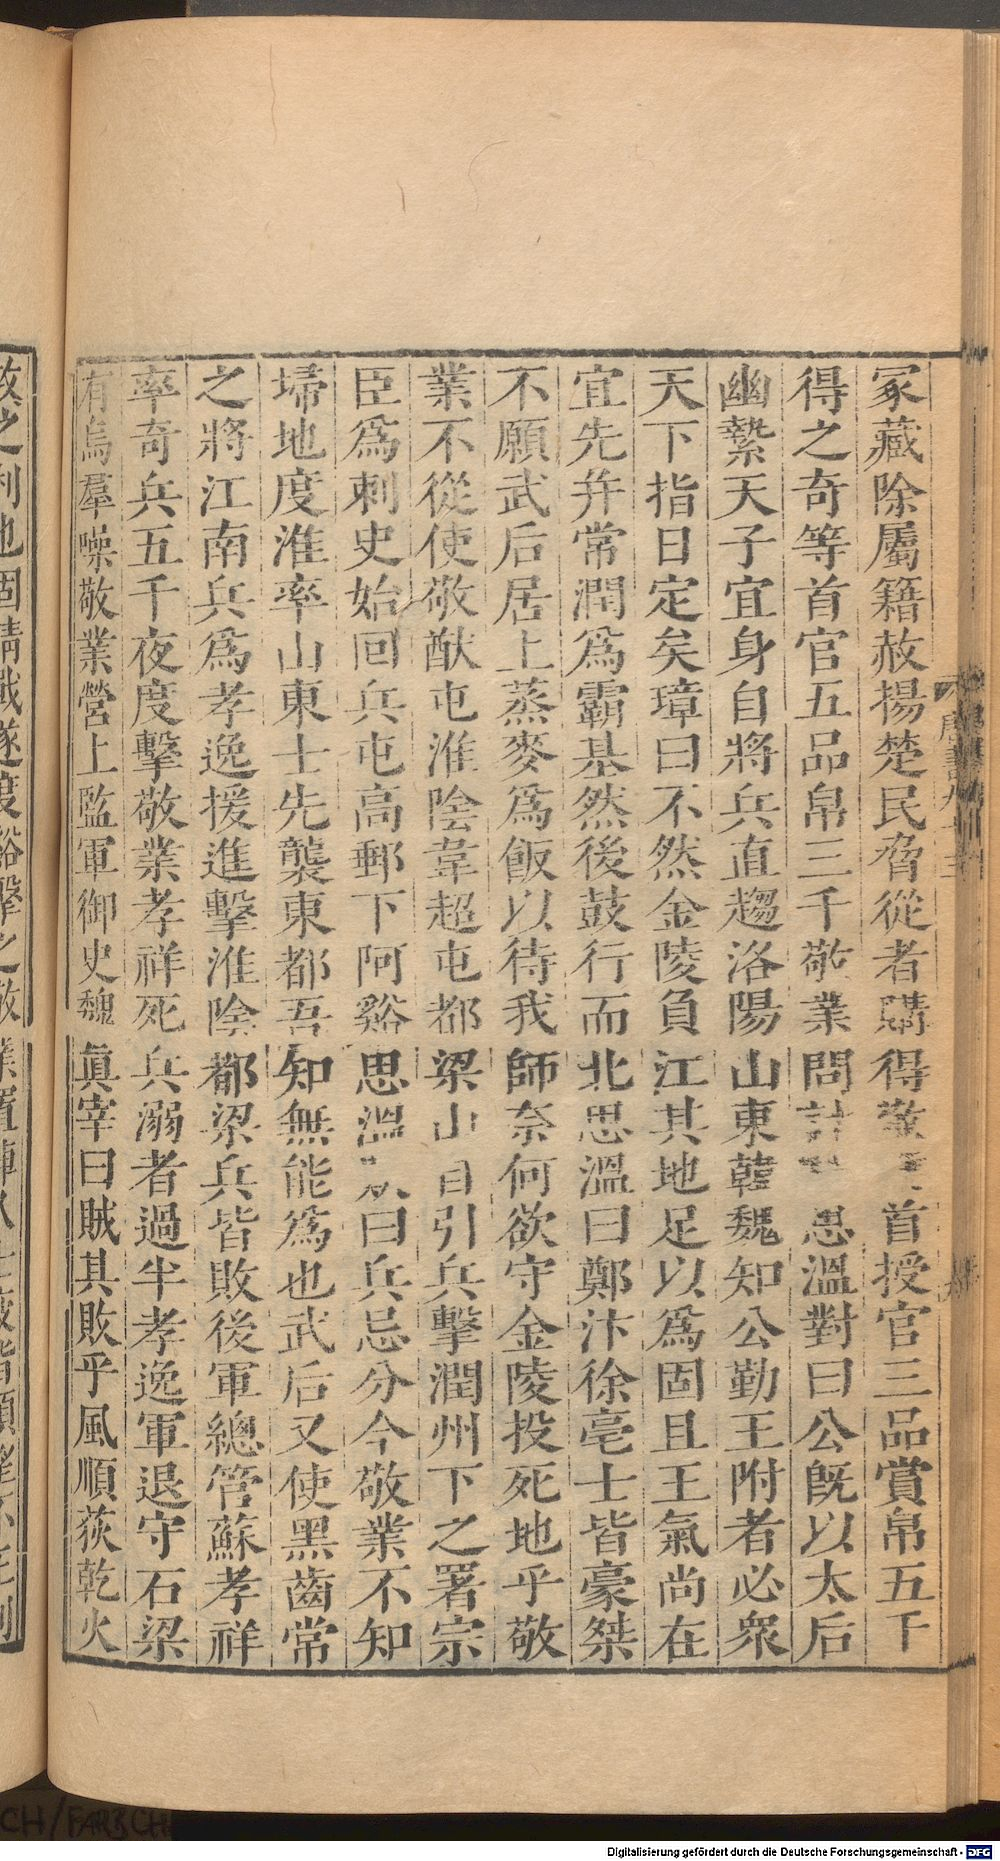 冢藏除屬籍赦揚楚民脅從者購得敬業首授官三品賞帛五千
得之奇等首官五品帛三千敬業問計思溫對曰公旣以太后
幽縶天子宜身自將兵直趨洛陽山東韓魏知公勤王附者必衆
天下指日定矣璋曰不然金陵負江其地足以爲固且王氣尚在
宜先幷常潤爲霸基然後鼓行而北思溫曰鄭汴徐亳士皆豪桀
不願武后居上蒸麥爲飯以待我師奈何欲守金陵投死地乎敬
業不從使敬猷屯淮陰韋超屯都梁山自引兵擊潤州下之署宗
臣爲刺史始回兵屯高郵下阿谿思溫曰兵忌分今敬業不知
埽地度淮率山東士先襲東都吾知無能爲也武后又使黑齒常
之將江南兵爲孝逸援進擊淮陰都梁兵皆敗後軍總管蘇孝祥
率奇兵五千夜度擊敬業孝祥死兵溺者過半孝逸軍退守石梁
有烏羣噪敬業營上監軍御史魏眞宰曰賊其敗乎風順荻乾火
之利也固請戰遂度谿擊之敬業置陣
Digitalisierung gefördert durch die Deutsche Forschungsgemeinschaft - DFG